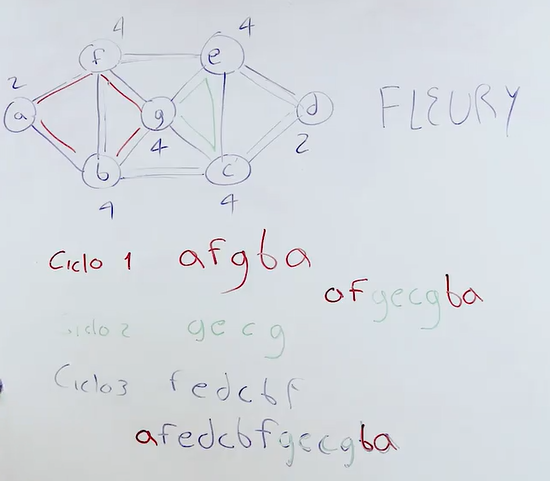 4
4
f
e
2
a
g
d
FLEURY
4
2
b
c
4
4
Ciclo 1 afgba
afgecgba
Ciclo 2 gecg
Ciclo3 fedcbf
afedcbfgecgba